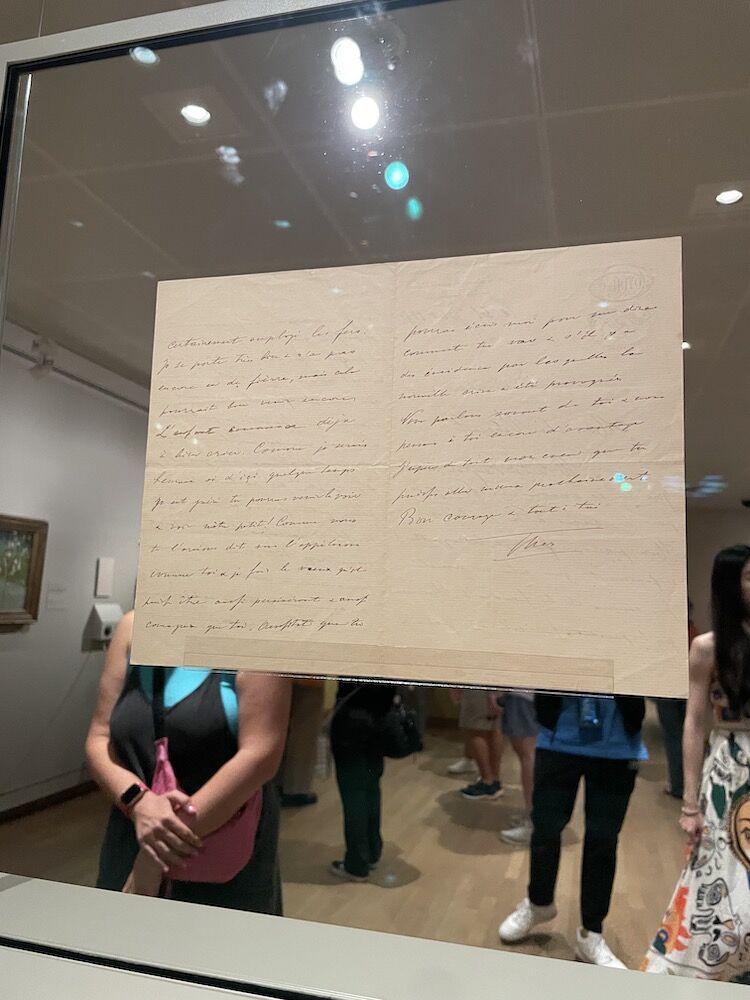 certainement employé les fers.
Jo se porte très bien & n'a pas
encore eu de fièvre, mais cela
pourrait bien venir encore.
L'enfant commence déjà
à bien crier. Comme je serais
heureux si d'ici quelque temps
Jo est guérie tu pourras venir la voir
& voir nôtre petit! Comme nous
te l'avions dit nous l'appelerons
comme toi & je fais le voeux qu'il
puisse être aussi persévérant & aussi
courageux que toi. Aussitôt que tu
pourras écris moi pour me dire
comment tu vas & s'il y a
des incidents par lesquelles la
nouvelle crise a été provoquée
Nous parlons souvent de toi & nous
pensons à toi encore d'avantage
J'espère de tout mon coeur que tu
puisse aller mieux prochainement
Bon courage & tout à toi
Theo